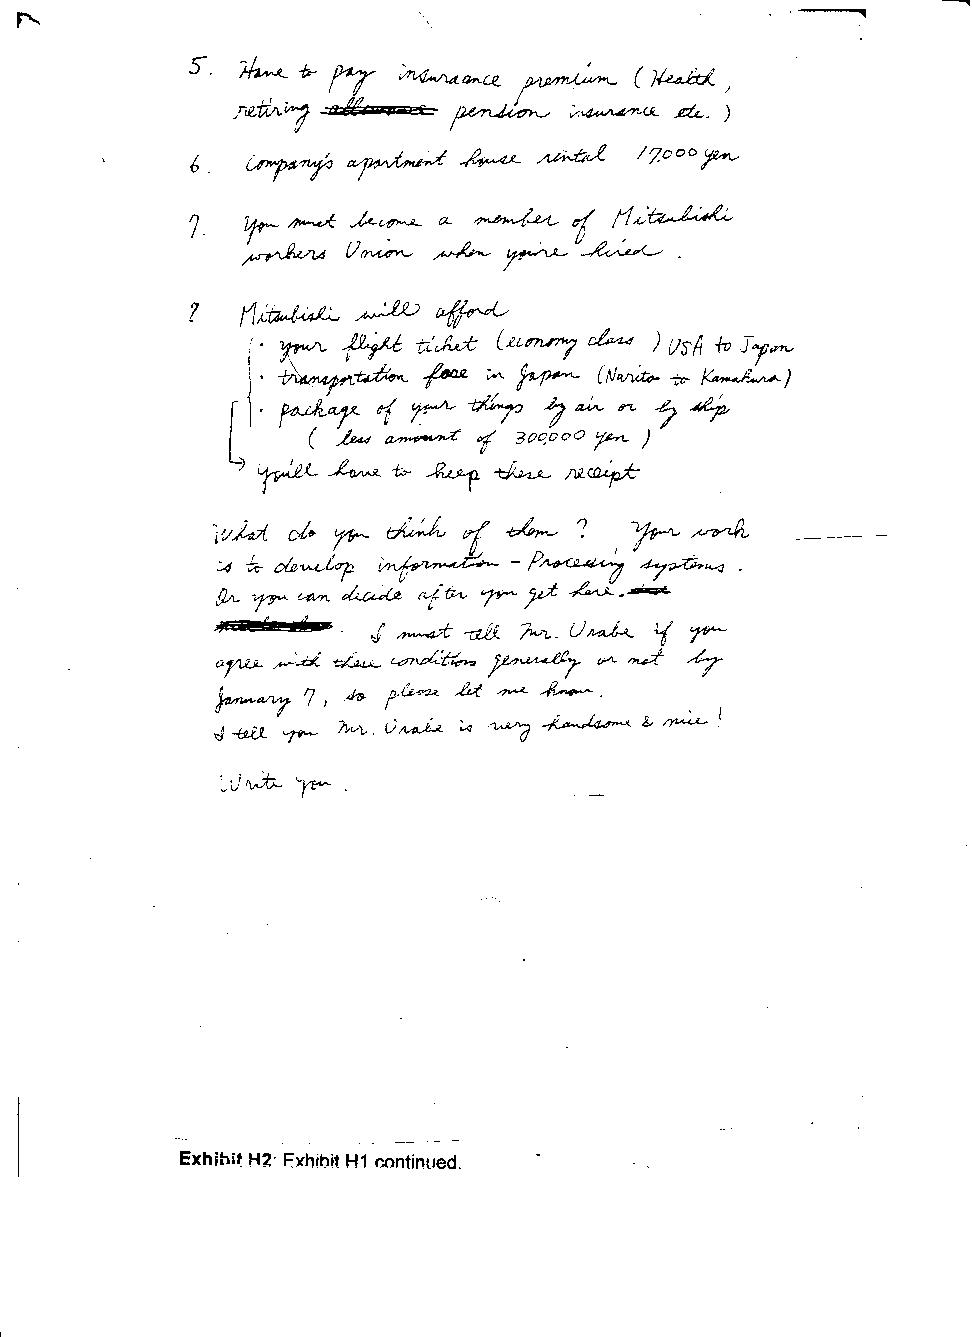 5. Have to pay insuraance premium (Health,
retiring pension insurance etc.)
6. Company's apartment house rental 17,000 yen
7. You must become a member of Mitsubishi
workers Union when you're hired.
? Mitsubishi will afford
· your flight ticket (economy class) USA to Japan
· transportation fare in Japan (Narita to Kamakura)
· package of your things by air or by ship
(less amount of 300,000 yen)
you'll have to keep these receipt
What do you think of them? Your work
is to develop information-Processing systems.
Or you can decide after you get here.
I must tell Mr. Urabe if you
agree with these conditions generally or not by
January 7, so please let me know.
I tell you Mr. Urabe is very handsome & nice!
Write you.
Exhibit H2: Exhibit H1 continued.